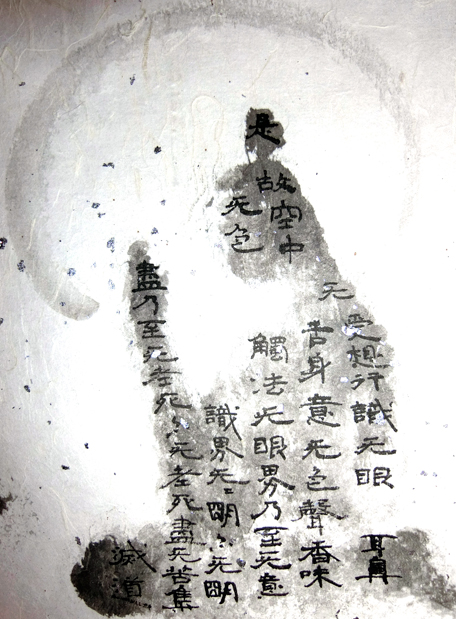 是
故空中
无色
无
受想行識无眼
耳鼻
舌身意无色聲香味
觸法无眼界乃至无意
識界无〻明〻无明
盡乃至无老死〻无老死盡无苦集
滅道